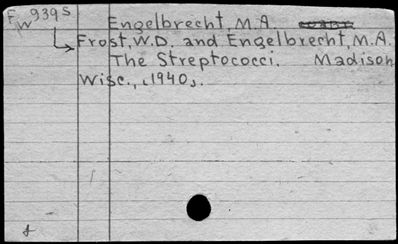 FW939S
Engelbrecht, M.A.
Frost, W.D. and Engelbrecht, M.A.
The Streptococci. Madison
Wisc., [1940].